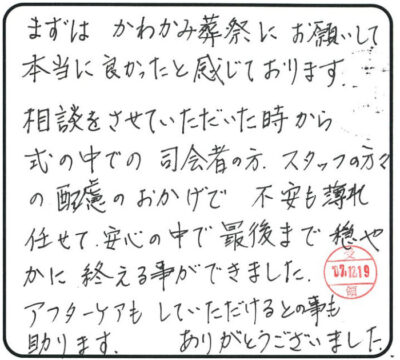 まずは かわかみ葬祭に お願いして
本当に良かったと感じております.
相談をさせていただいた時から
式の中での 司会者の方、スタッフの方々
の配慮のおかげで 不安も薄れ
任せて、安心の中で最後まで穏や
かに 終える事ができました.
アフターケアも していただけるとの事も
助ります. ありがとうございました.
07.12.19